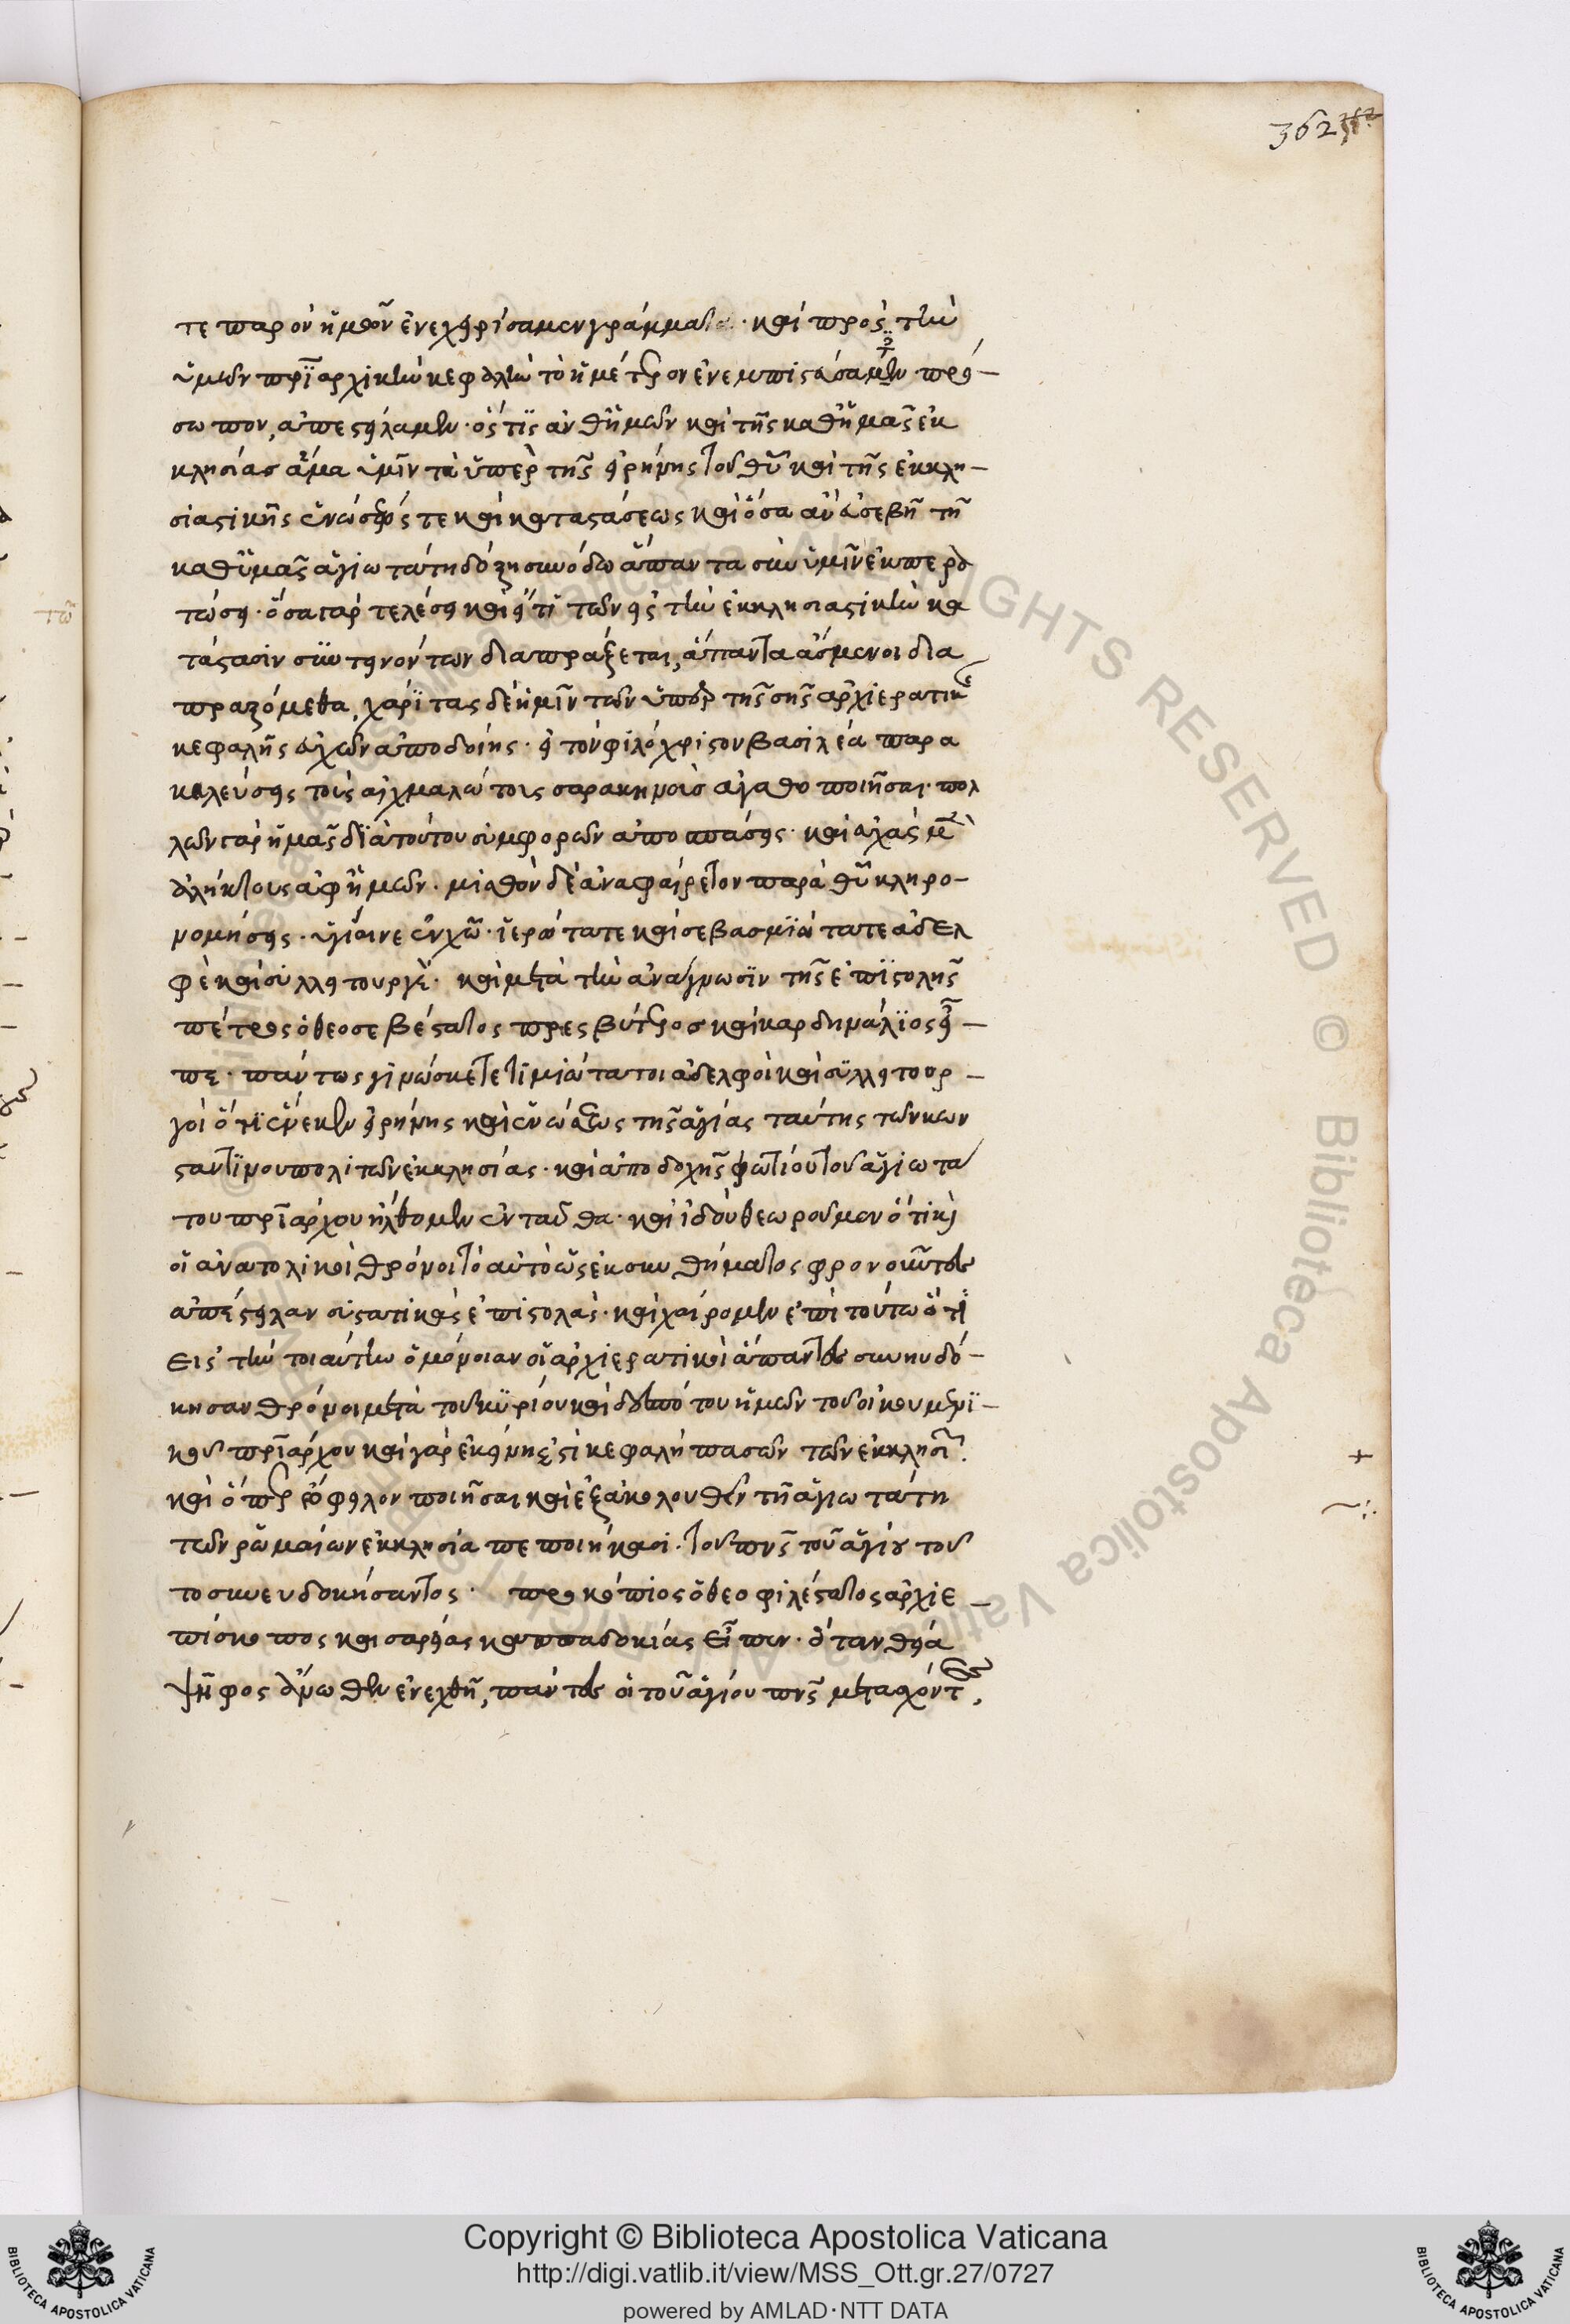 362
τε παρὸν ἡμῶν ἐνεχειρίσαμεν γράμματα· καὶ πρὸς τὴν
ὑμῶν πρϊαρχικὴν κεφαλὴν τὸ ἡμέτερον ἐνεμπιστευσάμην πρό-
σωπον, ἀπεστείλαμεν· ὅς τις ἀνθ ἡμῶν καὶ τῆς καθ ἡμᾶς ἐκ
κλησίας ἅμα ὑμῖν τὰ ὑπὲρ τῆς εἰρήνης τοῦ θυ καὶ τῆς ἐκκλη-
σιαστικῆς ἑνώσεώς τε καὶ καταστάσεως καὶ ὅσα ἂν εὐσεβῆ τῇ
καθ ὑμᾶς ἁγιωτάτη δόξη συνόδω ἅπαντα σὺν ὑμῖν ἐκπερα
τώσει· ὅσα γὰρ τελέσει καὶ εἴ τι τῶν εἰς τὴν ἐκκλησιαστικὴν κα
τάστασιν συντεινόντων διαπράξεται, ἅπαντα ἀσμένοι δια
πραξόμεθα, χάριτας δὲ ἡμῖν τῶν ὑπὲρ τῆς σῆς ἀρχιερατικῆς
κεφαλῆς εὐχῶν ἀποδοίης· εἰ τὸν φιλόχριστον βασιλέα παρα
καλεύσεις τοὺς αἰχμαλώτους σαρακηνοὺς ἀγαθοποιῆσαι· πολ
λῶν γὰρ ἡμᾶς διὰ τούτου συμφορῶν ἀποσπάσεις· καὶ εὐχὰς
ἀλήκτους ἀφ ἡμῶν· μισθὸν δὲ ἀναφαίρετον παρὰ θυ κληρο-
νομήσεις· ὑγίαινε ἐν χω· ἱερώτατε καὶ σεβασμιώτατε ἀδελ
φὲ καὶ συλλειτουργέ· καὶ μετὰ τὴν ἀνάγνωσιν τῆς ἐπιστολῆς
πέτρος ὁ θεοσεβέστατος πρεσβύτερος καὶ καρδηνάλιος εἶ-
πε· πάντως γινώσκετε τιμιώτατοι ἀδελφοὶ καὶ συλλειτουρ-
γοὶ ὅτι ἕνεκεν εἰρήνης καὶ ἑνώσεως τῆς ἁγίας ταύτης τῶν κων
σταντινουπολιτῶν ἐκκλησίας· καὶ ἀποδοχῆς φωτίου τοῦ ἁγιωτά
του πρϊάρχου ἤλθομεν ἐνταῦθα· καὶ ἰδοὺ θεωροῦμεν ὅτι καὶ
οἱ ἀνατολικοὶ θρόνοι τὸ αὐτὸ ὡς ἐκ συνθήματος φρονοῦντες
ἀπέστειλαν συστατικὰς ἐπιστολάς· καὶ χαίρομεν ἐπὶ τούτω ὅτι
εἰς τὴν τοιαύτην ὁμόνοιαν οἱ ἀρχιερατικοὶ ἅπαντες συνηυδό-
κησαν θρόνοι μετὰ τοῦ κυρίου καὶ δεσπότου ἡμῶν τοῦ οἰκουμενι-
κοῦ πρϊάρχου καὶ γὰρ ἐκείνη ἐστὶ κεφαλὴ πασῶν τῶν ἐκκλησι
καὶ ὅπερ ὤφειλον ποιῆσαι καὶ ἐξακολουθεῖν τῇ ἁγιωτάτη
τῶν ρωμαίων ἐκκλησία πεποιήκασι· τοῦ πνς τοῦ ἁγίου τοῦ
το συνευδοκήσαντος· προκόπιος ὁ θεοφιλέστατος ἀρχιε-
πίσκοπος καισαρείας καππαδοκίας εἶπεν· ὅταν θεία
ψῆφος ἄνωθεν ἐνεχθῇ, πάντες οἱ τοῦ ἁγίου πνς μετασχόντες,
Copyright © Biblioteca Apostolica Vaticana
http://digi.vatlib.it/view/MSS_Ott.gr.27/0727
powered by AMLAD·NTT DATA